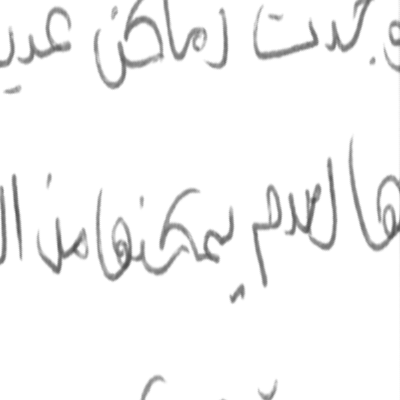 وجدت زماكن عدي
ها لعدم يمكنها من ال